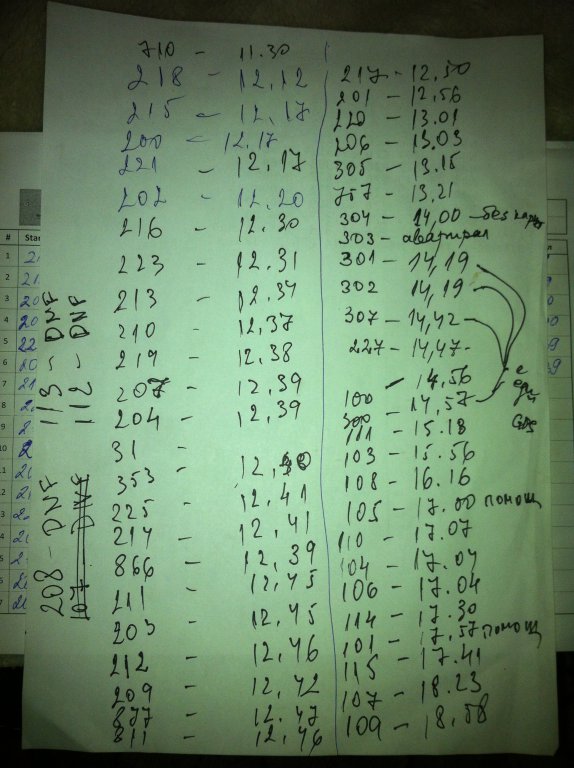 710 - 11.30
218 - 12,12
215 - 12,17
200 - 12.17
221 - 12,17
202 - 12,20
216 - 12.30
223 - 12.31
213 - 12.34
210 - 12,37
219 - 12,38
207 - 12,39
204 - 12,39
31 -
353 - 12,40
225 - 12,41
214 - 12,41
866 - 12,39
211 - 12.45
203 - 12,45
212 - 12,46
209 - 12,42
877 - 12.47
811 - 12,46
217 - 12,50
201 - 12,56
220 - 13.01
206 - 13.03
305 - 13.15
757 - 13.21
304 - 14,00 - без
303 -
301 - 14,19
302 14,19
307 - 14,42
227 - 14,47
100 - 14,56
300 14,57
111 - 15.18
103 - 15.56
108 - 16.16
105 - 17.00 помощ
110 - 17.07
104 - 17.04
106 - 17.04
114 - 17.30
101 - 17.57 помощ
115 - 17.41
107 - 18.23
109 - 18.58
113 - DNF
112 - DNF
208 - DNF
107 DNF
# Star